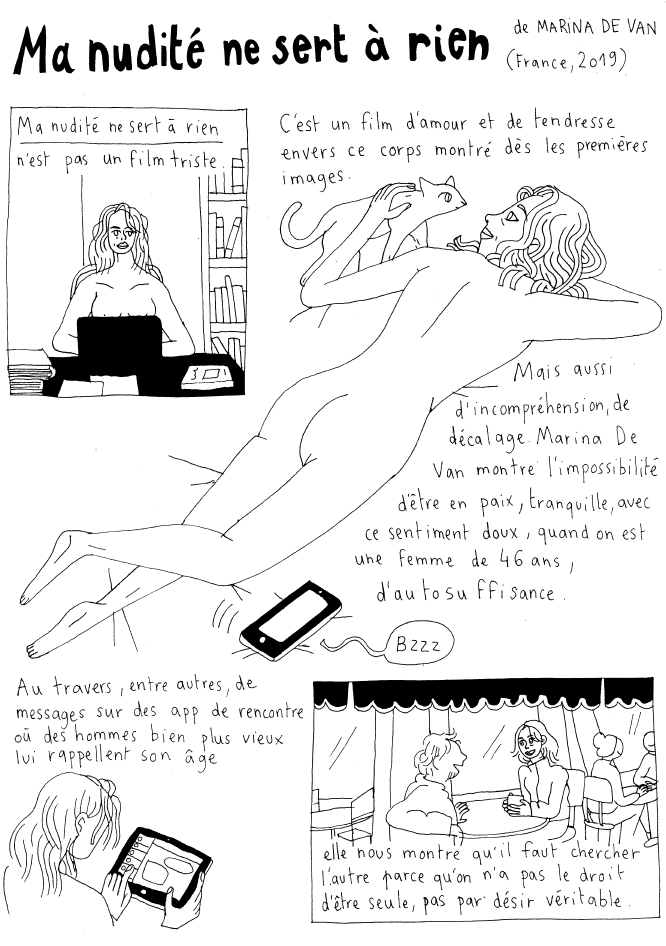 Ma nudité ne sert à rien
de MARINA DE VAN
(France, 2019)
Ma nudité ne sert à rien
n'est pas un film triste.
C'est un film d'amour et de tendresse
envers ce corps montré dès les premières
images.
Mais aussi
d'incompréhension, de
décalage. Marina De
Van montre l'impossibilité
d'être en paix, tranquille, avec
ce sentiment doux, quand on est
une femme de 46 ans,
d'autosuffisance.
Bzzz
Au travers, entre autres, de
messages sur des app de rencontre
où des hommes bien plus vieux
lui rappellent son âge
elle nous montre qu'il faut chercher
l'autre parce qu'on n'a pas le droit
d'être seule, pas par désir véritable.